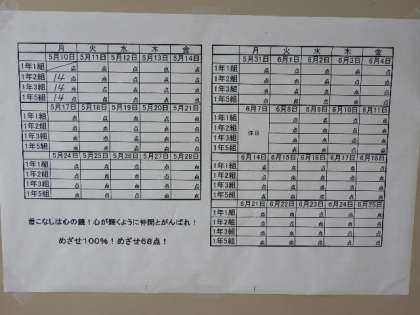 月 火 水 木 金
5月10日 5月11日 5月12日 5月13日 5月14日
1年1組 点 点 点 点
1年2組 14点 点 点 点 点
1年3組 14点 点 点 点 点
1年5組 14点 点 点 点 点
5月17日 5月18日 5月19日 5月20日 5月21日
1年1組 点 点 点 点 点
1年2組 点 点 点 点 点
1年3組 点 点 点 点 点
1年5組 点 点 点 点 点
5月24日 5月25日 5月26日 5月27日 5月28日
1年1組 点 点 点 点 点
1年2組 点 点 点 点 点
1年3組 点 点 点 点 点
1年5組 点 点 点 点 点
着こなしは心の鏡！心が輝くように仲間とがんばれ！
めざせ100％！めざせ68点！
月 火 水 木 金
5月31日 6月1日 6月2日 6月3日 6月4日
1年1組 点 点 点 点 点
1年2組 点 点 点 点 点
1年3組 点 点 点 点 点
1年5組 点 点 点 点 点
6月7日 6月8日 6月9日 6月10日 6月11日
1年1組 休日 点 点 点 点
1年2組 点 点 点 点
1年3組 点 点 点 点
1年5組 点 点 点 点
6月14日 6月15日 6月16日 6月17日 6月18日
1年1組 点 点 点 点 点
1年2組 点 点 点 点 点
1年3組 点 点 点 点 点
1年5組 点 点 点 点 点
6月21日 6月22日 6月23日 6月24日 6月25日
1年1組 点 点 点 点 点
1年2組 点 点 点 点 点
1年3組 点 点 点 点 点
1年5組 点 点 点 点 点